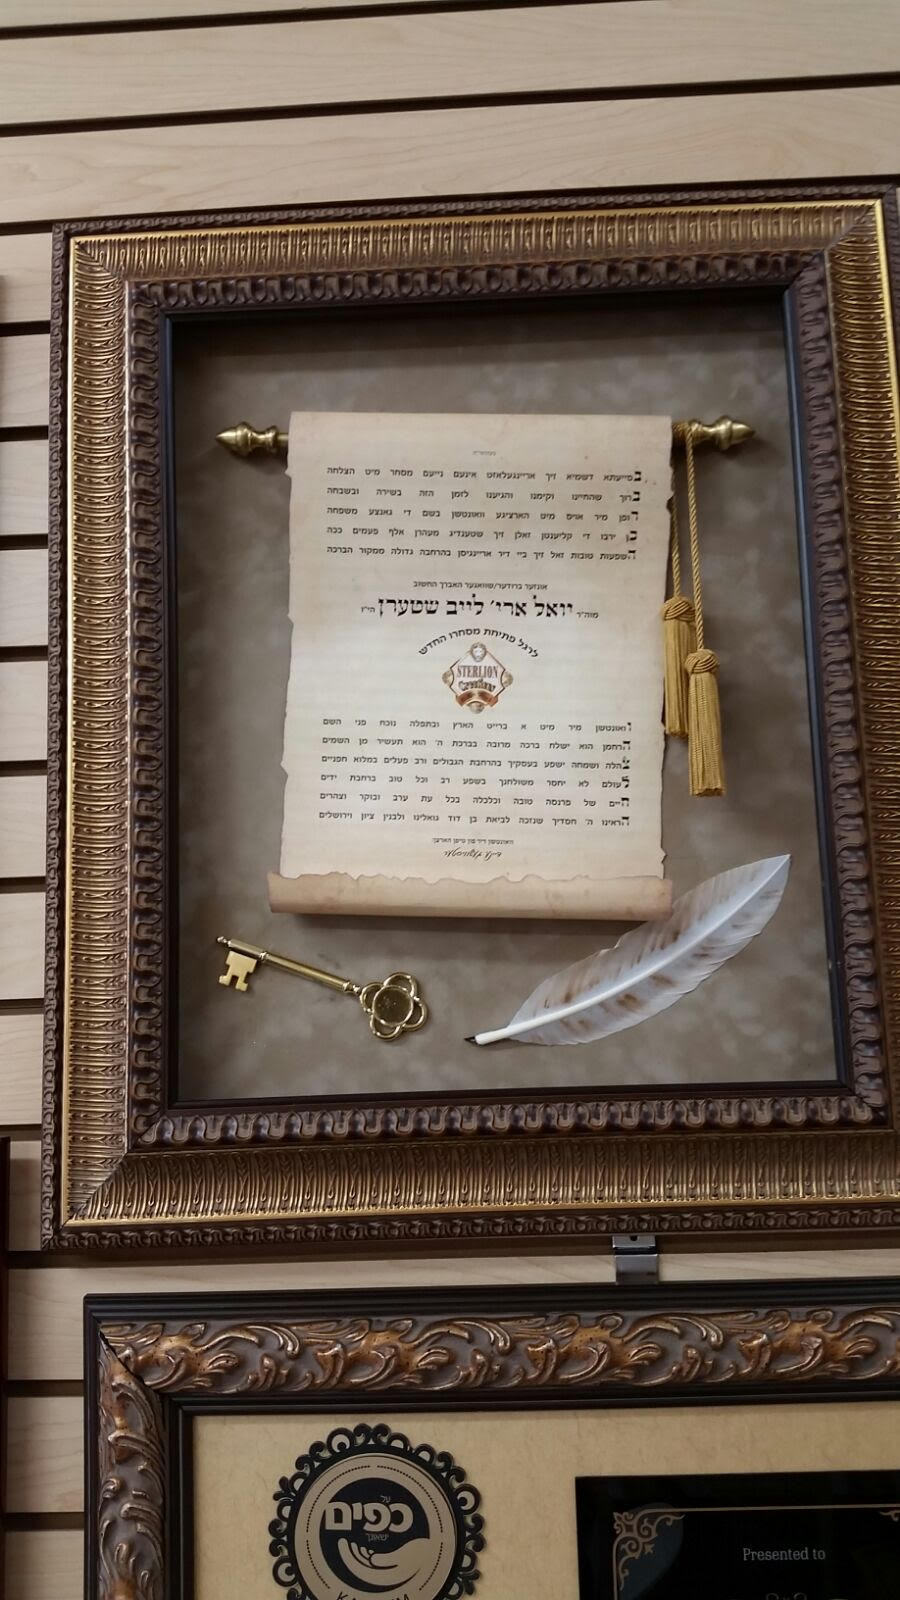 בסייעתא דשמיא זיך אריינגעלאזט אינעם נייעם מסחר מיט הצלחה
ברוך שהחיינו וקימנו והגיענו לזמן הזה בשירה ובשבחה
דופן מיר אויס מיט הארציגע וואונטשן בשם די גאנצע משפחה
כן ירבו די קליענטן זאלן זיך שטענדיג מערן אלף פעמים ככה
השפעות טובות זאל זיך ביי דיר אריינגיסן בהרחבה גדולה ממקור הברכה
אונזער ברודער/שוואגער האברך החשוב
מוה"ר יואל ארי' לייב שטערן הי"ו
לרגל פתיחת מסחרו החדש
STERLION
וואונטשן מיר מיט א ברייט הארץ ובתפלה נוכח פני השם
הרחמן הוא ישלח ברכה מרובה בברכת ה' הוא תעשיר מן השמים
צהלה ושמחה ישפע בעסקיך בהרחבת הגבולים ורב פעלים במלוא חפניים
לעולם לא יחסר משולחנך בשפע רב וכל טוב ברחבת ידים
חיים של פרנסה טובה וכלכלה בכל עת ערב ובוקר וצהרים
הראינו ה' חסדיך שנזכה לביאת בן דוד גואלינו ולבנין ציון וירושלים
הוואונטשן דיר פון טיפן הארצן
דיינע געשוויסטער
על
כפים
ישאונך
Presented to